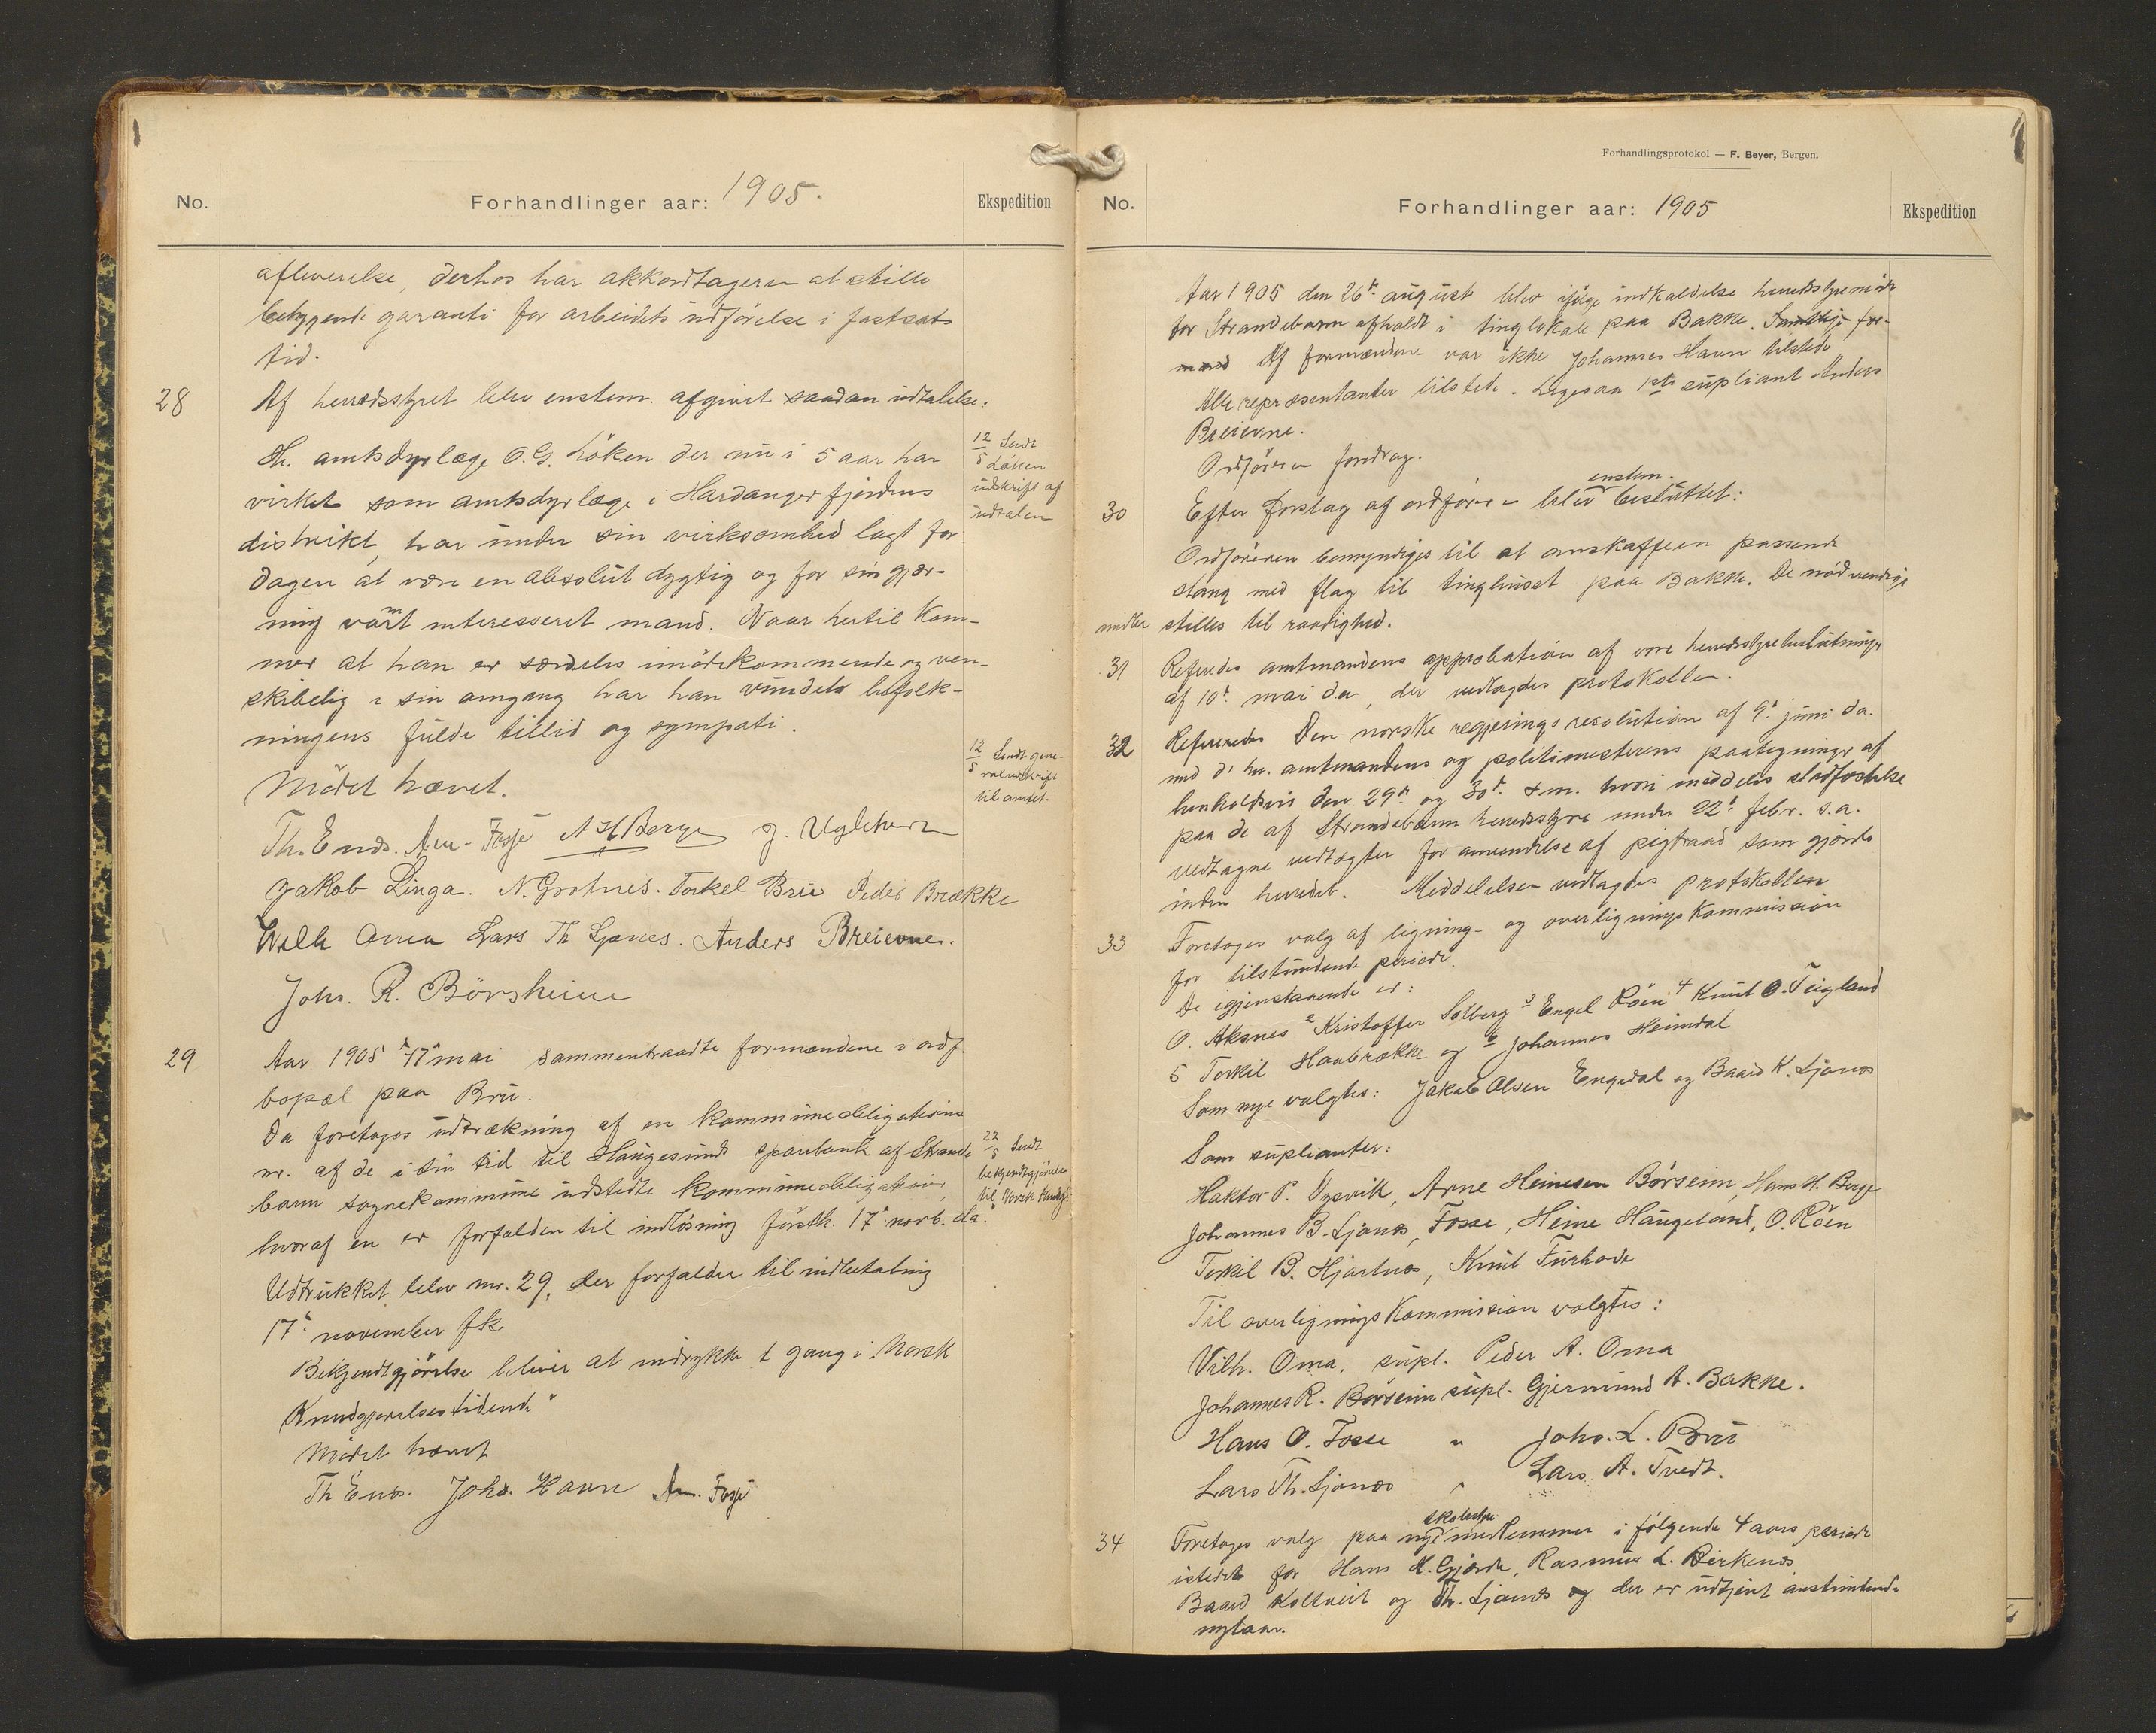 No.
Forhandlinger aar: 1905.
Ekspedition
afleverelse, derhos har akkordtageren at stille
betryggende garanti for arbeidets udførelse i fastsat
tid.
28
Af herredsstyret blev enstem. afgivet saadan udtalelse:
Hr. amtsdyrlæge O. G. Löken der nu i 5 aar har
virket som amtsdyrlæge i Hardangerfjordens
distrikt, har under sin virksomhed lagt for
dagen at være en absolut dygtig og for sin gjær-
ning varmt interesseret mand. Naar hertil kom-
mer at han er særdeles imödekommende og ven-
skibelig i sin omgang har han vundet befolk-
ningens fulde tillid og sympati.
12/5 Sendt
Löken
udskrift af
udtalen
Mödet hævet.
12/5 Sendt gene-
raludskrift
til amtet.
Th. Enæs. Arn. Fosse A H Berge J. Uglehus
Jakob Linga. N. Grotnes. Torkel Bru Peder Brække
Wilh Oma Lars Th Ljones. Anders Breievne.
Johs. R. Börsheim
29
Aar 1905 17de mai sammentraadte formændene i ordf.
bopæl paa Bru.
Da foretoges udtrækning af en kommuneobligations
nr. af de i sin tid til Haugesunds sparebank af Strande
barm sognekommune udstedte kommuneobligationer,
hvoraf en er forfalden til indlösning förstk. 17de novb. d.a.
22/5 Sendt
bekjendtgjörelse
til Norsk Kundgj.
Udtrukket blev nr. 29, der forfalder til indbetaling
17de november fk.
Bekjendtgjörelse bliver at indrykke 1 gang i Norsk
Kundgjørelsestidende"
Mödet hævet
Th Enæs. Johs. Havn Arn. Fosse
Forhandlingsprotokol — F. Beyer, Bergen.
No.
Forhandlinger aar: 1905
Ekspedition
Aar 1905 den 26de august blev ifölge indkaldelse herredsstyremöde
for Strandebarm afholdt i tinglokale paa Bakke. Samtlige for-
mænd Af formændene var ikke Johannes Havn tilstede
Alle repræsentanter tilstede. Ligesaa 1ste supliant Anders
Breievne.
Ordföreren fordrag.
30
Efter forslag af ordförer blev enstem. besluttet:
Ordföreren bemyndiges til at anskaffe en passende
stang med flag til tinghuset paa Bakke. De nödvendige
midler stilles til raadighed.
31
Referedes amtmandens approbation af vore herredsstyrebeslutninger
af 10de mai d.a, der vedtagdes protokollen.
32
Refereredes Den norske regjerings resolution af 9de juni d.a.
med d'hr. amtmandens og politimesterens paategninger af
henholdsvis den 29de og 30de s.m. hvori meddeles stadfæstelse
paa de af Strandebarm herredsstyre under 22de febr. s.a.
vedtagne vedtægter for anvendelse af pigtraad som gjerde
inden herredet. Meddelelsen vedtagdes protokollen
33
Foretoges valg af ligning- og overligningskommission
for tilstundende periode.
De igjenstaaende er:
O. Aksnes 2 Kristoffer Solberg 3 Engel Röen 4 Knut O. Teigland
5 Torkil Haabrække og 6 Johannes Heimdal
Som nye valgtes: Jakob Olsen Engedal og Baard K. Ljones
Som suplianter:
Haktor P. Vysvik, Arne Heinesen Börseim, Hans H. Berge
Johannes B. Ljones, Fosse, Heine Haugeland, O. Röen
Torkil B. Hjartnes, Knut Furhovde
Til overligningskommission valgtes:
Vilh. Oma, supl. Peder A. Oma
Johannes R. Börseim supl. Gjermund A. Bakke.
Hans O. Fosse " Johs. L. Bru
Lars Th. Ljones " Lars A. Tvedt.
34
Foretoges valg paa nye skolestyremedlemmer i fölgende 4 aars periode
istedet for Hans H. Gjerde, Rasmus L. Birkenes,
Baard Koltveit og Th. Ljones og der er udtjent anstundende
nytaar.